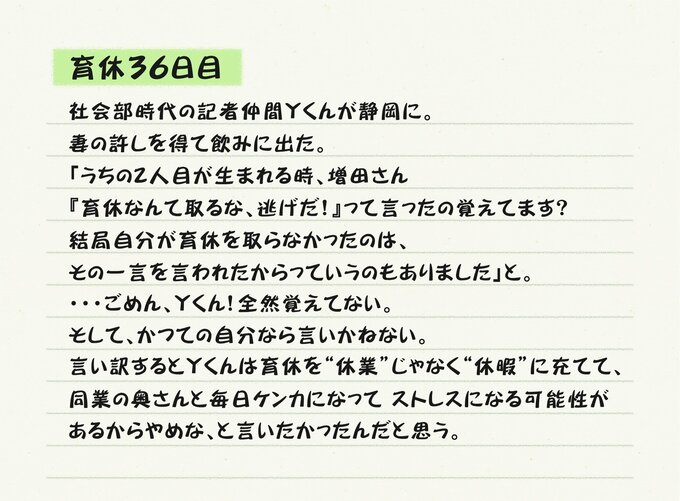 育休36日目
社会部時代の記者仲間Yくんが静岡に。
妻の許しを得て飲みに出た。
「うちの2人目が生まれる時、増田さん
『育休なんて取るな、逃げだ!』って言ったの覚えてます?
結局自分が育休を取らなかったのは、
その一言を言われたからっていうのもありました」と。
・・・ごめん、Yくん!全然覚えてない。
そして、かつての自分なら言いかねない。
言い訳するとYくんは育休を“休業”じゃなく“休暇”に充てて、
同業の奥さんと毎日ケンカになって ストレスになる可能性が
あるからやめな、と言いたかったんだと思う。